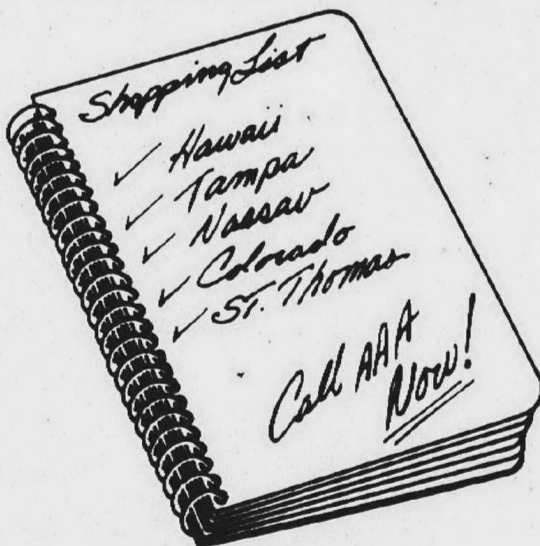 Shopping List
✓ Hawaii
✓ Tampa
✓ Nassau
✓ Colorado
✓ St. Thomas
Call AAA
Now!